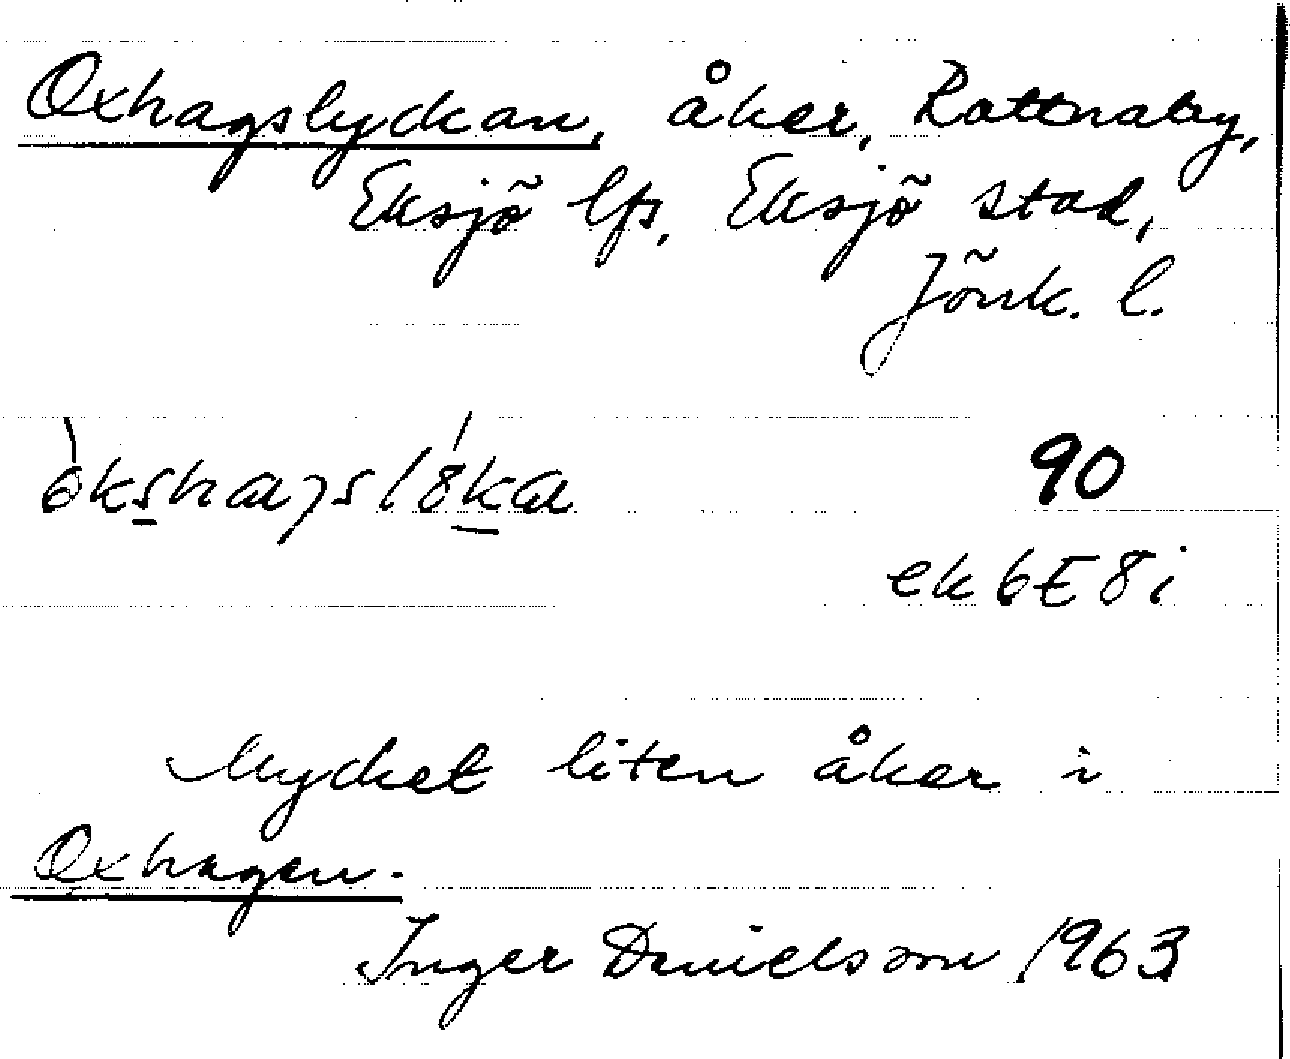 Oxhagslyckan, åker, Rattnaby,
Eksjö lfs, Eksjö stad,
Jönk. l.
90
ek 6E8i
Mycket liten åker i
Oxhagen.
Inger Danielsson 1963